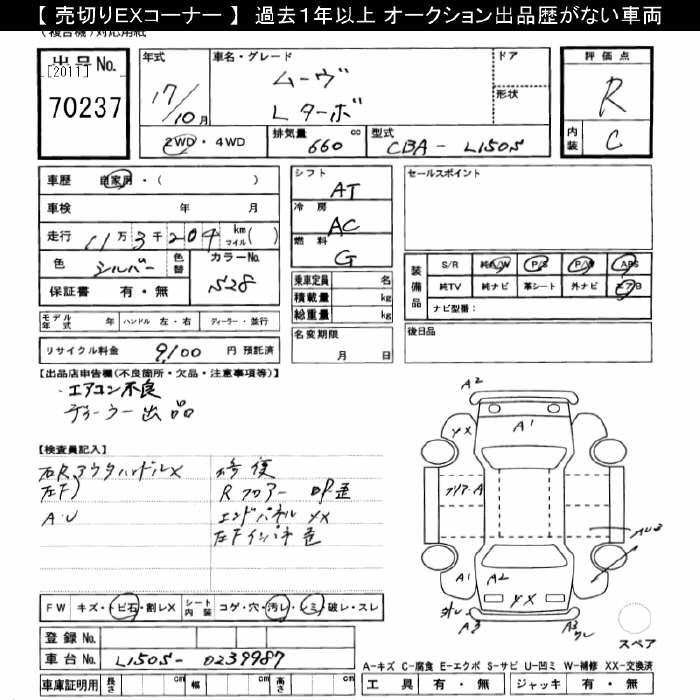 【 売切りEXコーナー 】 過去1年以上 オークション出品歴がない車両
(複合機)対応用紙
出品 No.
[2011]
70237
年式
17/10月
車名・グレード
ムーヴ
Lターボ
ドア
形状
評価点
R
内装
C
2WD・4WD
排気量
660 cc
型式
CBA - L150S
車歴 自家用・( )
車検 年 月
走行 11万3千204 km マイル( )
色 シルバー 色替 カラーNo. S28
保証書 有・無
シフト
AT
冷房
AC
燃料
G
セールスポイント
装備品
S/R 純A/W P/S P/W ABS
純TV 純ナビ 革シート 外ナビ エアB
ナビ型番:
乗車定員 名
積載量 kg
総重量 kg
モデル年式 年 ハンドル 左・右 ディーラー・並行
名変期限
月 日
後日品
リサイクル料金 9,100 円 預託済
【出品店申告欄(不良箇所・欠品・注意事項等)】
・エアコン不良
ディーラー出品
【検査員記入】
右Rアウタハンドル✕
左F〃
A.U
修復
Rフロアー 凹歪
エンドパネル YX
左Fインパネ
A2
YX
A1
クリア・A
A1
A2
YX
A3
A3
FW キズ・トビ石・割レX シート内装 コゲ・穴・汚レ・シミ・破レ・スレ
スペア
登録 No.
車台 No. L150S - 0239987
車庫証明用 長さ cm 幅 cm 高さ cm
A-キズ C-腐食 E-エクボ S-サビ U-凹ミ W-補修 XX-交換済
工具 有・無 ジャッキ 有・無